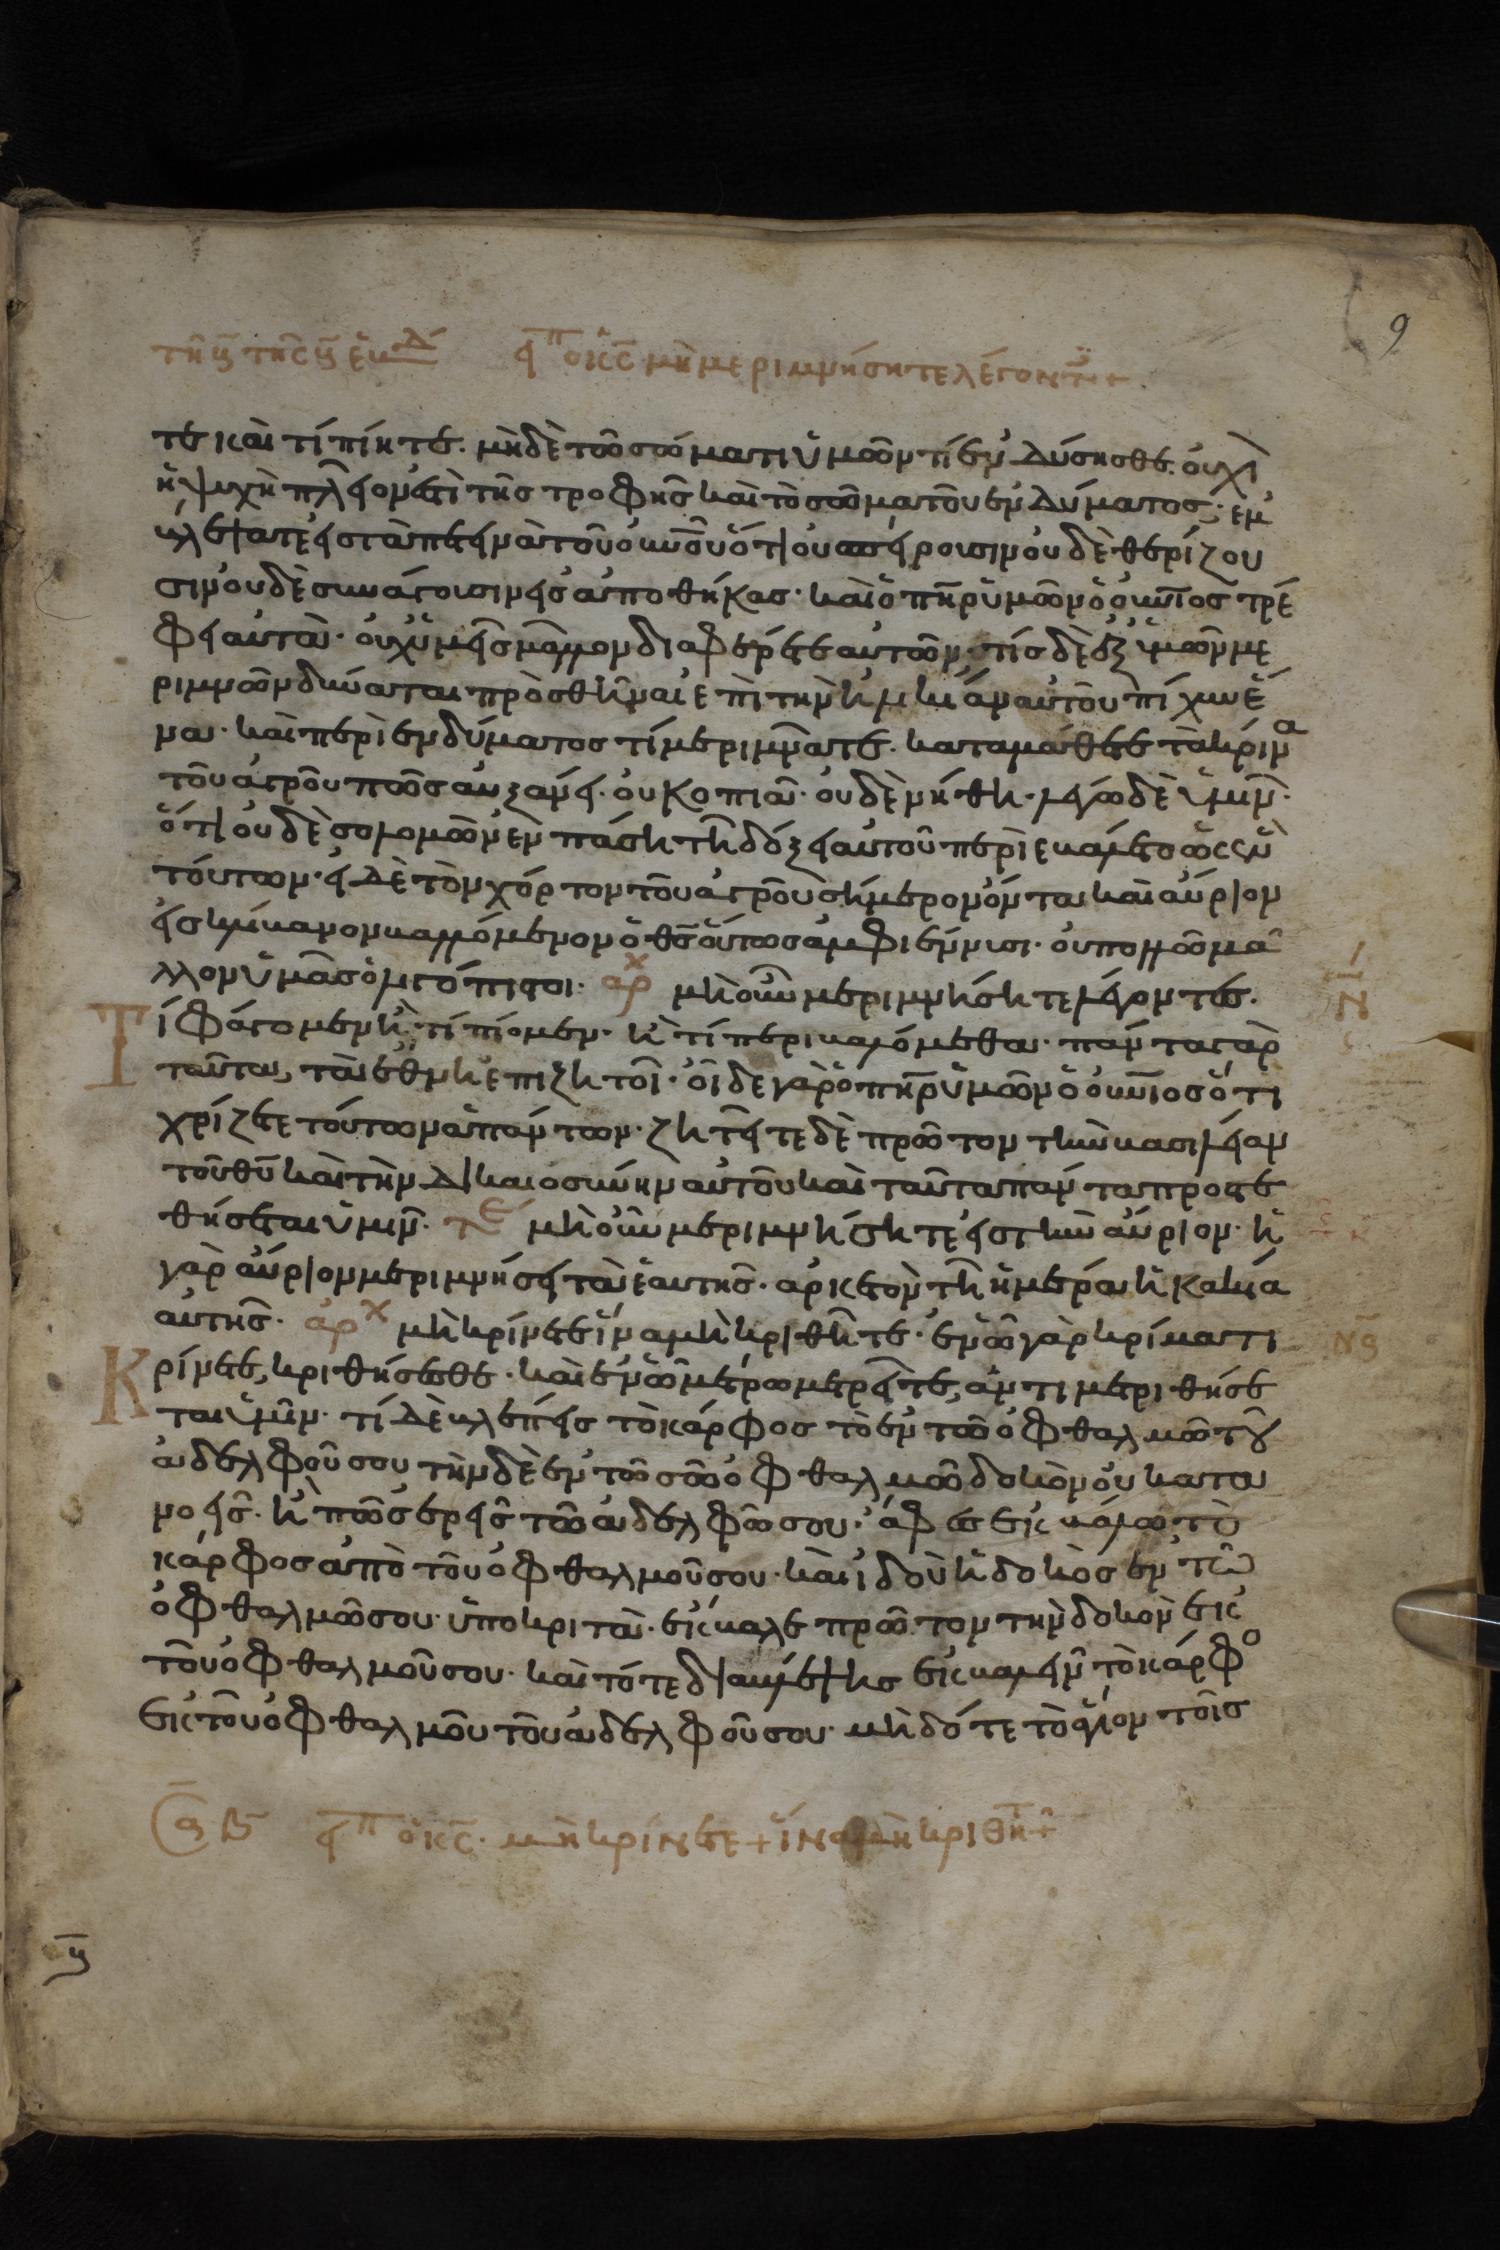 εἶπεν ὁ κ̅ς̅ μὴ μεριμνήσητε λέγοντ
9
τε καὶ τί πίητε. μὴδὲ τῶ σώματι ὑμῶν τί ἐνδύσησθε. οὐχὶ
ἡ ψυχὴ πλεῖον ἐστὶ τῆς τροφῆς καὶ τὸ σῶμα τοῦ ἐνδύματος; ἐμ
βλέψατε εἰς τὰ πετεινὰ τοῦ οὐν̅ο̅υ̅ ὅτι οὐ σπείρουσιν οὐδὲ θερίζου
σιν οὐδὲ συνάγουσιν εἰς ἀποθήκας. καὶ ὁ π̅η̅ρ̅ ὑμῶν ὁ οὐν̅ιος τρέ
φει αυτά. οὐχ ὑμεῖς μᾶλλον διαφέρετε αὐτῶν. τίς δὲ ἐξ ὑμῶν με
ριμνῶν δύναται προσθῆναι ἐπὶ τὴν ἡλικίαν αὐτοῦ πίχυν ἕ
να. καὶ περὶ ἐνδύματος τί μεριμνᾶτε. καταμάθετε τὰ κρίνα
τοῦ ἀγροῦ πῶς αυξάνει. οὐ κοπιᾶ. οὐδὲ νήθη. λέγω δὲ ὑμῖν.
ὅτι οὐδὲ σολομῶν ἐν πάση τῆ δόξει αὐτοῦ περιεβάλετο ὡς ἓν
τούτων. εἰ δὲ τὸν χόρτον τοῦ ἀγροῦ σήμερον ὄντα καὶ αύριον
εἰς κλίβανον βαλλόμενον ὁ θ̅ς̅ οὕτως ἀμφιέννισι. οὐ πολλῶ μᾶ
λλον ὑμᾶς ὀλιγόπιστοι. αρχ μὴ οὖν μεριμνήσητε λέγοντες.
Τί φάγομεν ἢ τί πίομεν. ἢ τί περιβαλόμεθα. πάντα γὰρ
ταῦτα, τὰ ἔθνη ἐπιζητοῖ. οἶδε γὰρ ὁ π̅η̅ρ̅ ὑμῶν ὁ οὐν̅ιος ὅτι
χρίζετε τούτων ἁπάντων. ζητεῖτε δὲ πρῶτον τὴν βασιλείαν
τοῦ θ̅υ̅ καὶ τὴν δικαιοσύνην αὐτοῦ καὶ ταῦτα πάντα προστε
θήσεται ὑμῖν. τε μὴ οὖν μεριμνήσητε εἰς τὴν αὔριον. ἡ
γὰρ αὔριον μεριμνήσει τὰ ἑαυτῆς. ἀρκετὸν τῆ ἡμέρα ἡ κακία
αὐτῆς. αρχ μὴ κρίνετε ἵνα μὴ κριθῆτε. ἐν ὧ γὰρ κρίματι
Κρίνετε, κριθήσεσθε. καὶ ἐν ὧ μέτρω μετρεῖτε, ἀντιμετριθήσε
ται ὑμῖν. τί δὲ βλέπεις τὸ κάρφος τὸ ἐν τῶ ὀφθαλμῶ τοῦ
ἀδελφοῦ σου τὴν δὲ ἐν τῶ σῶ ὀφθαλμῶ δοκὸν οὐ κατα
νοεῖς. ἢ πῶς ἐρεῖς τῶ ἀδελφῶ σου. ἄφες ἐκβάλω τὸ
κάρφος ἀπὸ τοῦ ὀφθαλμοῦ σου. καὶ ἰδοὺ ἡ δοκὸς ἐν τῶ
ὀφθαλμῶ σου. ὑποκριτά. ἔκβαλε πρῶτον τὴν δοκὸν ἐκ
τοῦ ὀφθαλμοῦ σου. καὶ τότε διαβλέψης ἐκβαλεῖν τὸ κάρφο
ἐκ τοῦ ὀφθαλμοῦ τοῦ ἀδελφοῦ σου. μὴ δότε τὸ ἅγιον τοῖς
εἶπεν ὁ κ̅ς̅. μὴ κρίνετε + ἵνα μὴ κριθῆτ +